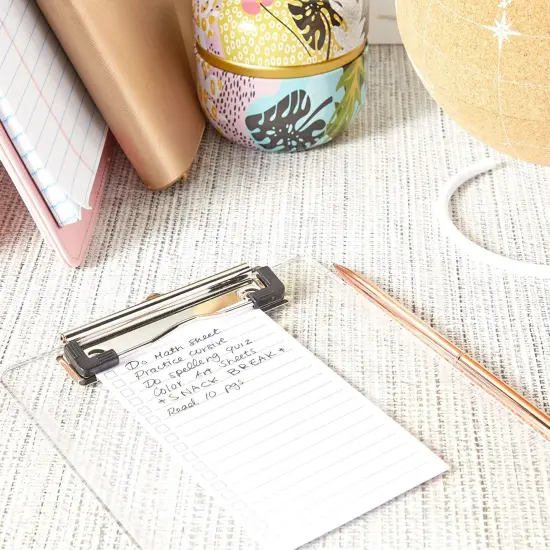 Do Math sheet
Practice cursive
Do spelling quiz
Color Art Sheets
+ SNACK BREAK +
Read 10 pgs.